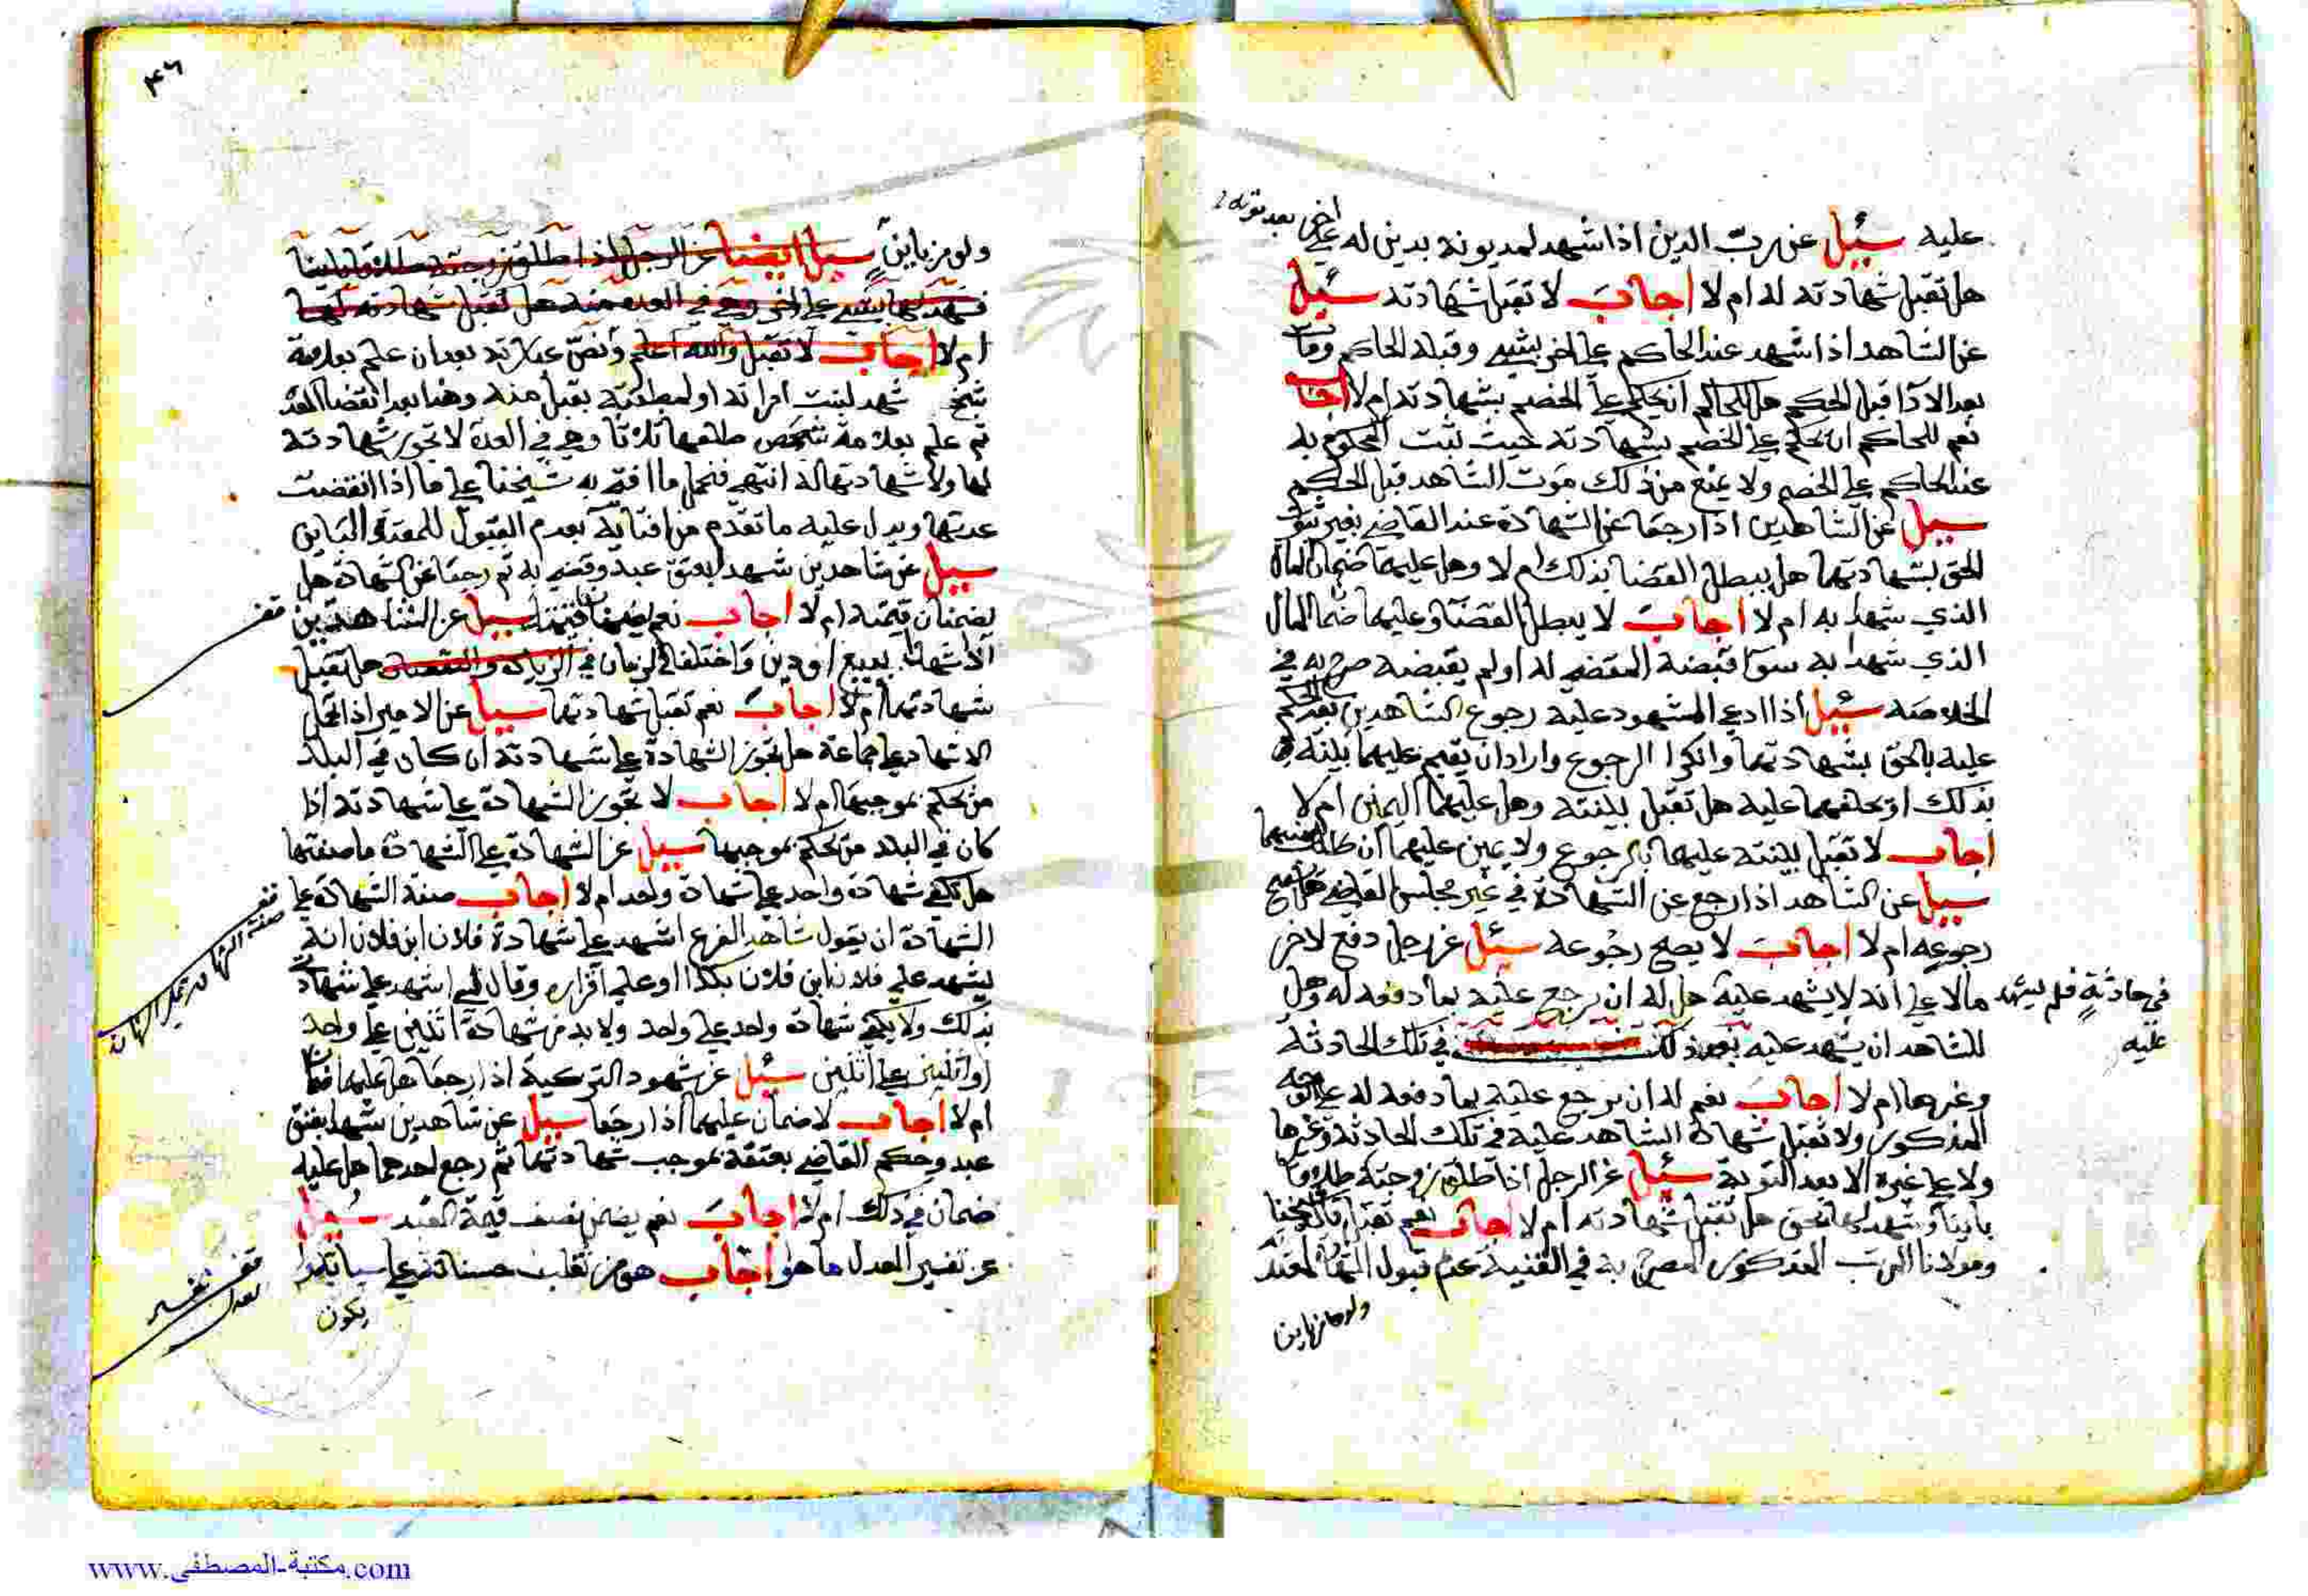 عليه سئيل عن رب الدين اذا شهد لمديونه بدين له على اخر بعد موته
هل تقبل شهادته له ام لا اجاب لا تقبل شهادته سئيل
عن الشاهد اذا شهد عند الحاكم على اخر بشيء وقبله الحاكم ومات
بعد الادا قبل الحكم هل للحاكم ان يحكم على الخصم بشهادته ام لا اجاب
نعم للحاكم ان يحكم على الخصم بشهادته حيث ثبت المحكوم به
عند الحاكم على الخصم ولا يمنع من ذلك موت الشاهد قبل الحكم
سييل عن الشاهدين اذا رجعا عن الشهادة عند القاضي بغير ثبوت
الحق بشهادتهما هل يبطل القضا بذلك ام لا وهل عليهما ضمان المال
الذي شهدا به ام لا اجاب لا يبطل القضا وعليهما ضمان المال
الذي شهدا به سوآ قبضه المقضي له او لم يقبضه صرح به في
الخلاصه سئيل اذا ادعى المشهود عليه رجوع الشاهدين بعد الحكم
عليه بالحق بشهادتهما وانكرا الرجوع واراد ان يقيم عليهما بينه
بذلك او يحلفهما عليه هل تقبل بينته وهل عليهما اليمين ام لا
اجاب لا تقبل بينته عليهما بالرجوع ولا يمين عليهما ان طلب
سييل عن الشاهد اذا رجع عن الشهادة في غير مجلس القاضي هل يصح
رجوعه ام لا اجاب لا يصح رجوعه سئيل عن رجل دفع لاخر
مالا على انه لا يشهد عليه في حادثة فلم يشهد عليه هل له ان يرجع عليه بما دفعه له وهل
للشاهد ان يشهد عليه بعد ذلك في تلك الحادثة
وغيرها ام لا اجاب نعم له ان يرجع عليه بما دفعه له على الوجه
المذكور ولا تقبل شهادة الشاهد عليه في تلك الحادثة وغيرها
ولا على غيره الا بعد التوبة سئيل عن الرجل اذا طلق زوجته طلاقا
باينا وشهد لها بحق هل تقبل شهادته ام لا اجاب نعم تقبل
ومولانا المذكور المصرح به في القنية عدم قبول
ولو من باين
٤٦
ولو من باين سييل ايضا عن الرجل اذا طلق زوجته طلاقا باينا
فشهد لها بشيء على اخر وهي في العده منه هل تقبل شهادته لها
ام لا اجاب لا تقبل والله اعلم ونص عبارته بعد ان علم بعلامة
شخ شهد لبنت امراته او لمطلقته يقبل منه وهنا بعد انقضا العدة
ثم علم بعلامة طلقها ثلاثا وهي في العدة لا تجوز شهادته
لها ولا شهادتها له انتهى فنحمل ما افتى به شيخنا على ما اذا انقضت
عدتها ويدل عليه ما تقدم من افتائه بعدم القبول للمعتدة الباين
سييل عن شاهدين شهدا بعتق عبد وقضي به ثم رجعا عن الشهادة هل
يضمنان قيمته ام لا اجاب نعم يضمنا قيمته سييل عن الشاهدين
اذا شهدا ببيع او دين واختلفا في الزمان في الزيادة والنقصان هل تقبل
شهادتهما ام لا اجاب نعم تقبل شهادتهما سييل عن الامير اذا تحمل
الاشهاد على جماعة هل تجوز الشهادة على شهادته ان كان في البلد
من يحكم بموجبها ام لا اجاب لا تجوز الشهادة على شهادته اذا
كان في البلد من يحكم بموجبها سييل عن الشهادة على الشهادة ما صفتها
هل تكفي شهادة واحد على شهادة واحد ام لا اجاب صفة الشهادة على
الشهادة ان يقول شاهد الفرع اشهد على شهادة فلان ابن فلان انه
يشهد على فلان ابن فلان بكذا او على اقراره وقال لي اشهد على شهادتي
بذلك ولا يكفي شهادة واحد على واحد ولا بد من شهادة اثنين على واحد
او اثنين على اثنين سئيل عن شهود التزكية اذا رجعا هل عليهما ضمان
ام لا اجاب لا ضمان عليهما اذا رجعا سييل عن شاهدين شهدا بعتق
عبد وحكم القاضي بعتقه بموجب شهادتهما ثم رجع احدهما هل عليه
ضمان في ذلك ام لا اجاب نعم يضمن نصف قيمة العبد سييل
عن تفسير العدل ما هو اجاب هو من تغلب حسناته على سياته
يكون
قف
قف
صفة الشهادة على الشهادة
قف
تفسير
العدل
www.مكتبة-المصطفى.com